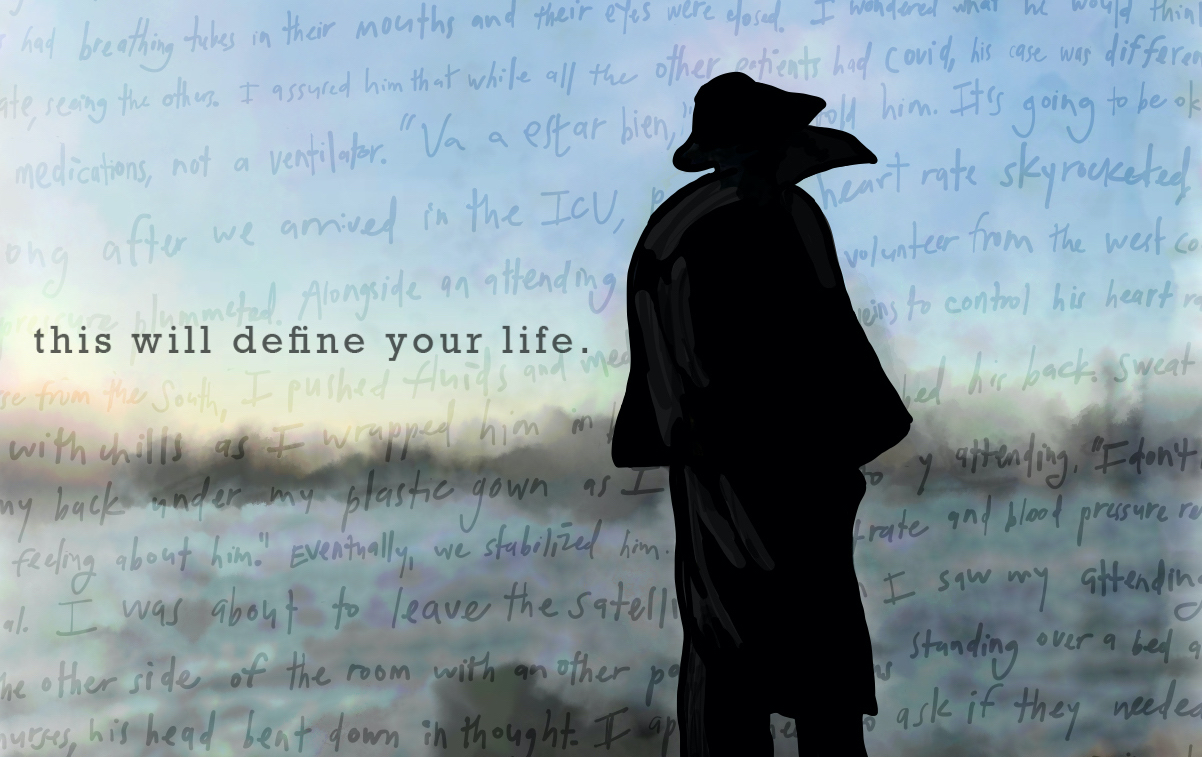 had breathing tubes in their mouths and their eyes were closed. I wondered what he would thin
ate, seeing the others. I assured him that while all the other patients had Covid, his case was differen
medications, not a ventilator. "Va a estar bien," told him. It's going to be ok
ong after we arrived in the ICU, heart rate skyrocketed,
pressure plummeted. Alongside an attending volunteer from the west co
this will define your life.
se from the South, I pushed fluids and med eins to control his heart r
with chills as I wrapped him in bed his back. Sweat
my back under my plastic gown as I to y attending, "I don't
feeling about him." Eventually, we stabilized him. rate and blood pressure re
al. I was about to leave the satelli I saw my attending
he other side of the room with another pa standing over a bed a
nurses, his head bent down in thought. I ap to ask if they needed